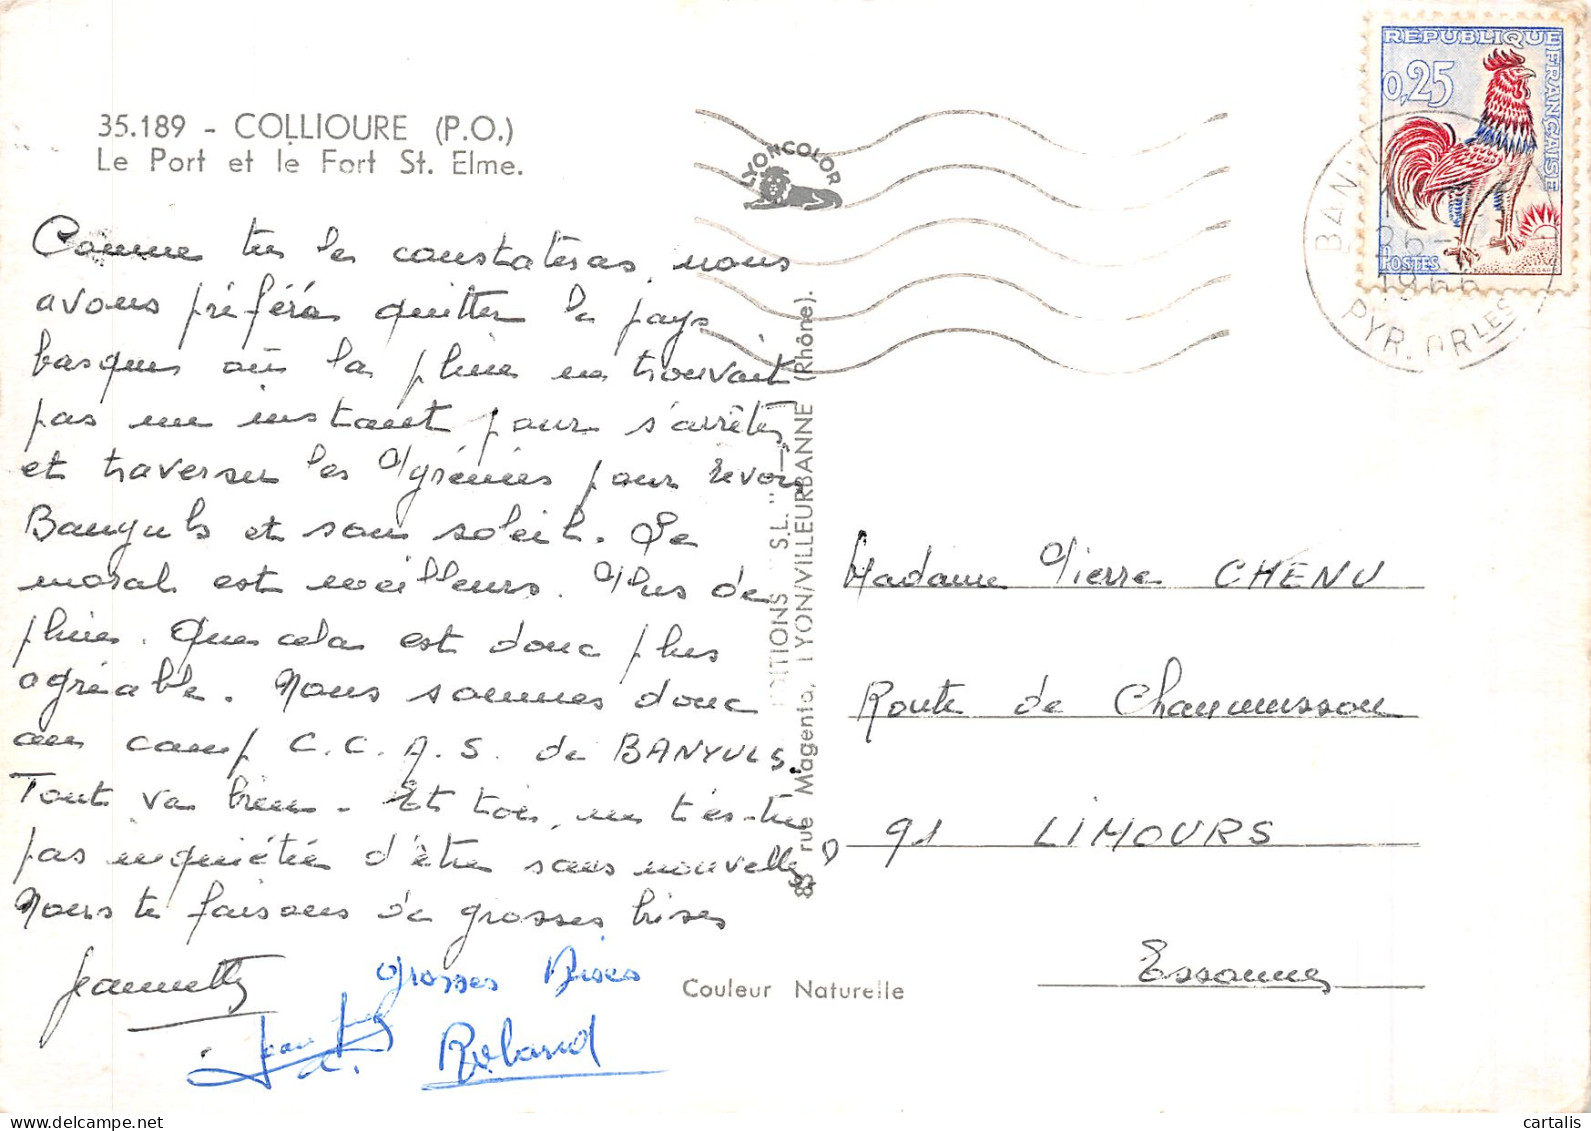 35.189 - COLLIOURE (P.O.)
Le Port et le Fort St. Elme.
Comme tu le constateras, nous
avons préféré quitter le pays
basque où la pluie ne trouvait
pas un instant pour s'arrêter
et traverser les Pyrénées pour revoir
Banyuls et son soleil. Le
moral est meilleurs. Plus de
pluie. Que cela est donc plus
agréable. Nous sommes donc
au camp C.C.A.S. de BANYULS.
Tout va bien - Et toi, ne t'es-tu
pas inquiétée d'être sans nouvelles ?
Nous te faisons de grosses bises
Jeannette
grosses Bises
Jean
Roland
LYONCOLOR
EDITIONS "S.L."
83 rue Magenta, LYON/VILLEURBANNE (Rhône).
Couleur Naturelle
REPUBLIQUE FRANÇAISE
0,25
POSTES
BANYULS
26
1966
PYR. ORLES
Madame Pierre CHENU
Route de Chaumusson
91 LIMOURS
Essonne
www.delcampe.net
cartalis